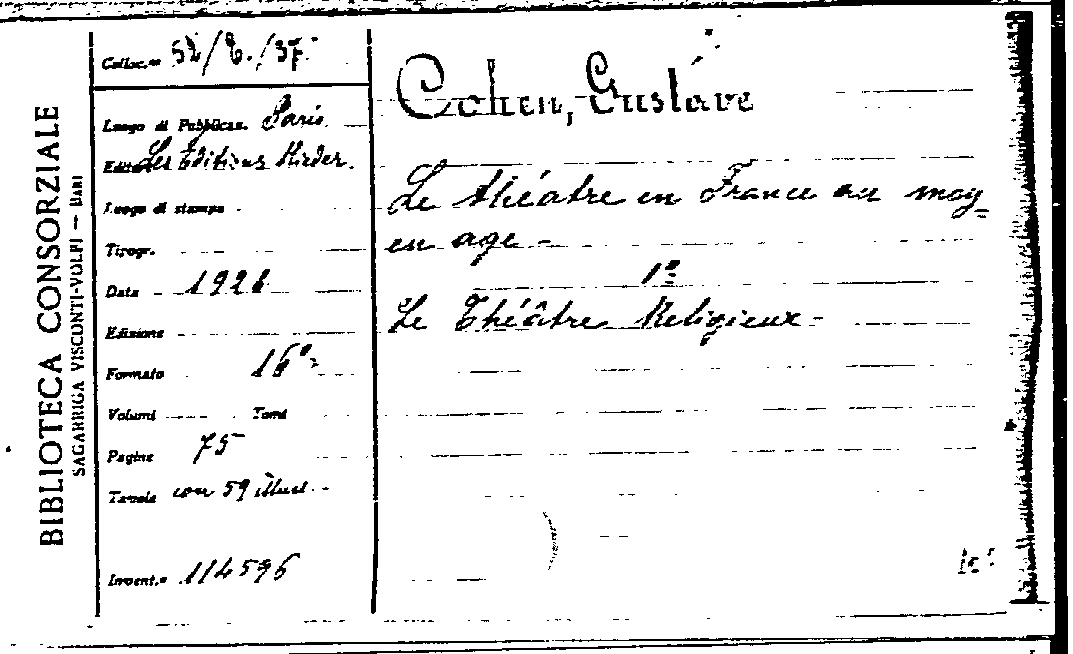 BIBLIOTECA CONSORZIALE
SAGARRIGA VISCONTI-VOLPI — BARI
Colloc.ne 52/E./37
Luogo di Pubblicaz. Paris
Editore Les Éditions Rieder.
Luogo di stampa
Tipogr.
Data 1928
Edizione
Formato 16°
Volumi Tomi
Pagine 75
Tavole con 59 illust.
Invent.e 114596
Cohen, Gustave
Le théatre en France au moy=
en age -
1°
Le Théâtre Religieux -